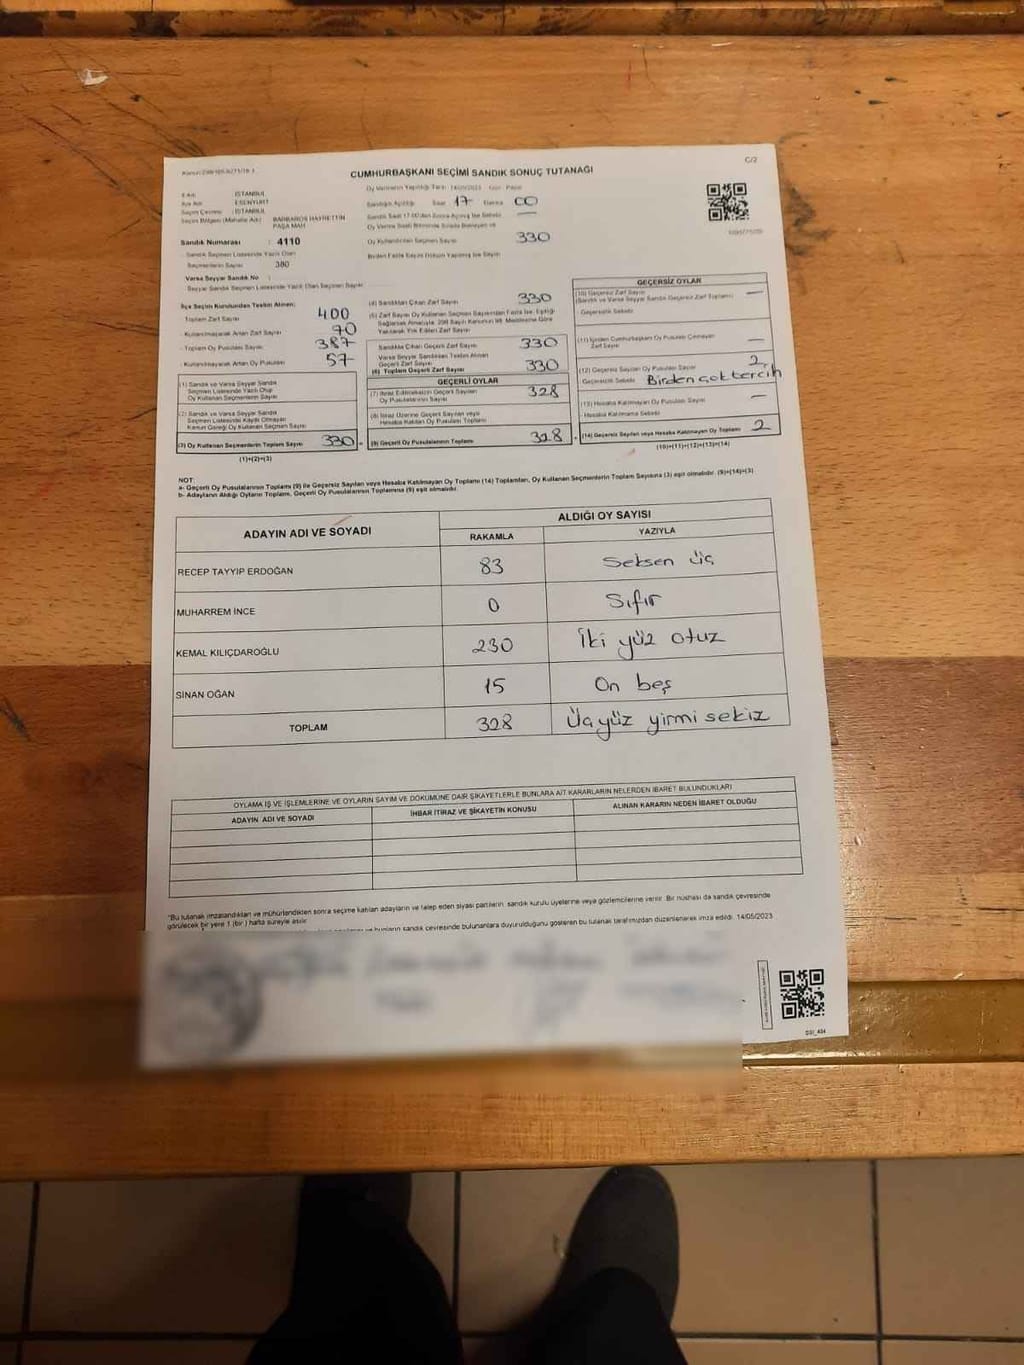 C/2
CUMHURBAŞKANI SEÇİMİ SANDIK SONUÇ TUTANAĞI
İl Adı : İSTANBUL
İlçe Adı : ESENYURT
Seçim Çevresi : İSTANBUL
Seçim Bölgesi (Mahalle Adı) : BARBAROS HAYRETTİN PAŞA MAH
Sandık Numarası : 4110
Sandık Seçmen Listesinde Yazılı Olan
Seçmenlerin Sayısı 380
Varsa Seyyar Sandık No :
Seyyar Sandık Seçmen Listesinde Yazılı Olan Seçmen Sayısı
Oy Vermenin Yapıldığı Tarih 14/05/2023
Sandığın Açıldığı Saat 17 Dakika 00
Oy Kullandırılan Seçmen Sayısı 330
İlçe Seçim Kurulundan Teslim Alınan;
Toplam Zarf Sayısı 400
- Kullanılmayarak Artan Zarf Sayısı 70
- Toplam Oy Pusulası Sayısı 387
- Kullanılmayarak Artan Oy Pusulası 57
(1) Sandık ve Varsa Seyyar Sandık
Seçmen Listesinde Yazılı Olup
Oy Kullanan Seçmenlerin Sayısı
(2) Sandık ve Varsa Seyyar Sandık
Seçmen Listesinde Kaydı Olmayan
Kanun Gereği Oy Kullanan Seçmen Sayısı
(3) Oy Kullanan Seçmenlerin Toplam Sayısı 330
(1)+(2)=(3)
(4) Sandıktan Çıkan Zarf Sayısı 330
Sandıkta Çıkan Geçerli Zarf Sayısı 330
Varsa Seyyar Sandıktan Teslim Alınan
Geçerli Zarf Sayısı
(6) Toplam Geçerli Zarf Sayısı 330
GEÇERLİ OYLAR
(7) İtiraz Edilmeksizin Geçerli Sayılan
Oy Pusulalarının Sayısı 328
(8) İtiraz Üzerine Geçerli Sayılan veya
Hesaba Katılan Oy Pusulası Toplamı
(9) Geçerli Oy Pusulalarının Toplamı 328
GEÇERSİZ OYLAR
(10) Geçersiz Zarf Sayısı —
(Sandık ve Varsa Seyyar Sandık Geçersiz Zarf Toplamı)
Geçersizlik Sebebi
(11) İçinden Cumhurbaşkanı Oy Pusulası Çıkmayan
Zarf Sayısı —
(12) Geçersiz Sayılan Oy Pusulası Sayısı 2
Geçersizlik Sebebi Birden çok tercih
(13) Hesaba Katılmayan Oy Pusulası Sayısı —
Hesaba Katılmama Sebebi
(14) Geçersiz Sayılan veya Hesaba Katılmayan Oy Toplamı 2
(10)+(11)+(12)+(13)=(14)
NOT:
a- Geçerli Oy Pusulalarının Toplamı (9) ile Geçersiz Sayılan veya Hesaba Katılmayan Oy Toplamı (14) Toplamları, Oy Kullanan Seçmenlerin Toplam Sayısına (3) eşit olmalıdır. (9)+(14)=(3)
b- Adayların Aldığı Oyların Toplamı, Geçerli Oy Pusulalarının Toplamına (9) eşit olmalıdır.
ADAYIN ADI VE SOYADI ALDIĞI OY SAYISI
RAKAMLA YAZIYLA
RECEP TAYYIP ERDOĞAN 83 Seksen üç
MUHARREM İNCE 0 Sıfır
KEMAL KILIÇDAROĞLU 230 İki yüz otuz
SİNAN OĞAN 15 On beş
TOPLAM 328 Üçyüz yirmi sekiz
OYLAMA İŞ VE İŞLEMLERİNE VE OYLARIN SAYIM VE DÖKÜMÜNE DAİR ŞİKAYETLERLE BUNLARA AİT KARARLARIN NELERDEN İBARET BULUNDUKLARI
ADAYIN ADI VE SOYADI İHBAR İTİRAZ VE ŞİKAYETİN KONUSU ALINAN KARARIN NEDEN İBARET OLDUĞU
"Bu tutanak imzalandıktan ve mühürlendikten sonra seçime katılan adayların ve talep eden siyasi partilerin, sandık kurulu üyelerine veya gözlemcilerine verilir. Bir nüshası da sandık çevresinde
görülecek bir yere 1 (bir) hafta süreyle asılır.
bunların sandık çevresinde bulunanlara duyurulduğunu gösteren bu tutanak tarafımızdan düzenlenerek imza edildi. 14/05/2023